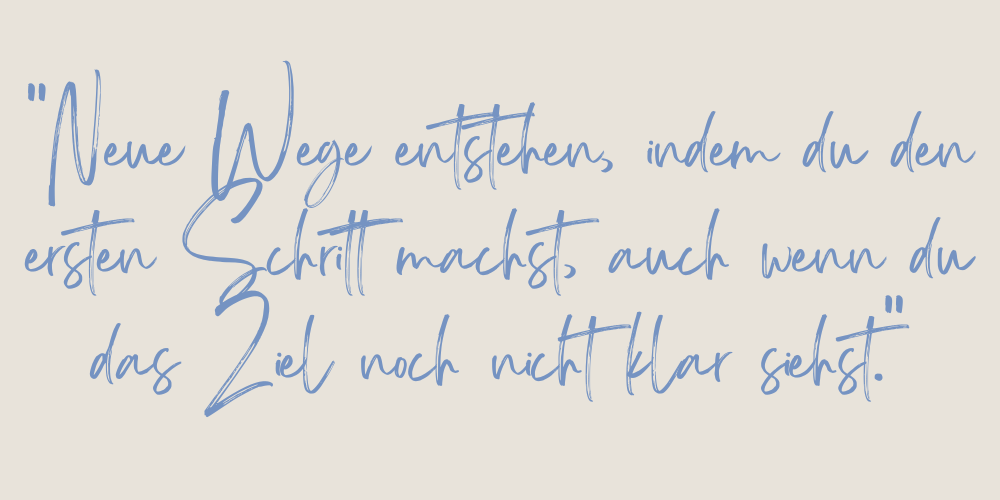 "Neue Wege entstehen, indem du den
ersten Schritt machst, auch wenn du
das Ziel noch nicht klar siehst."